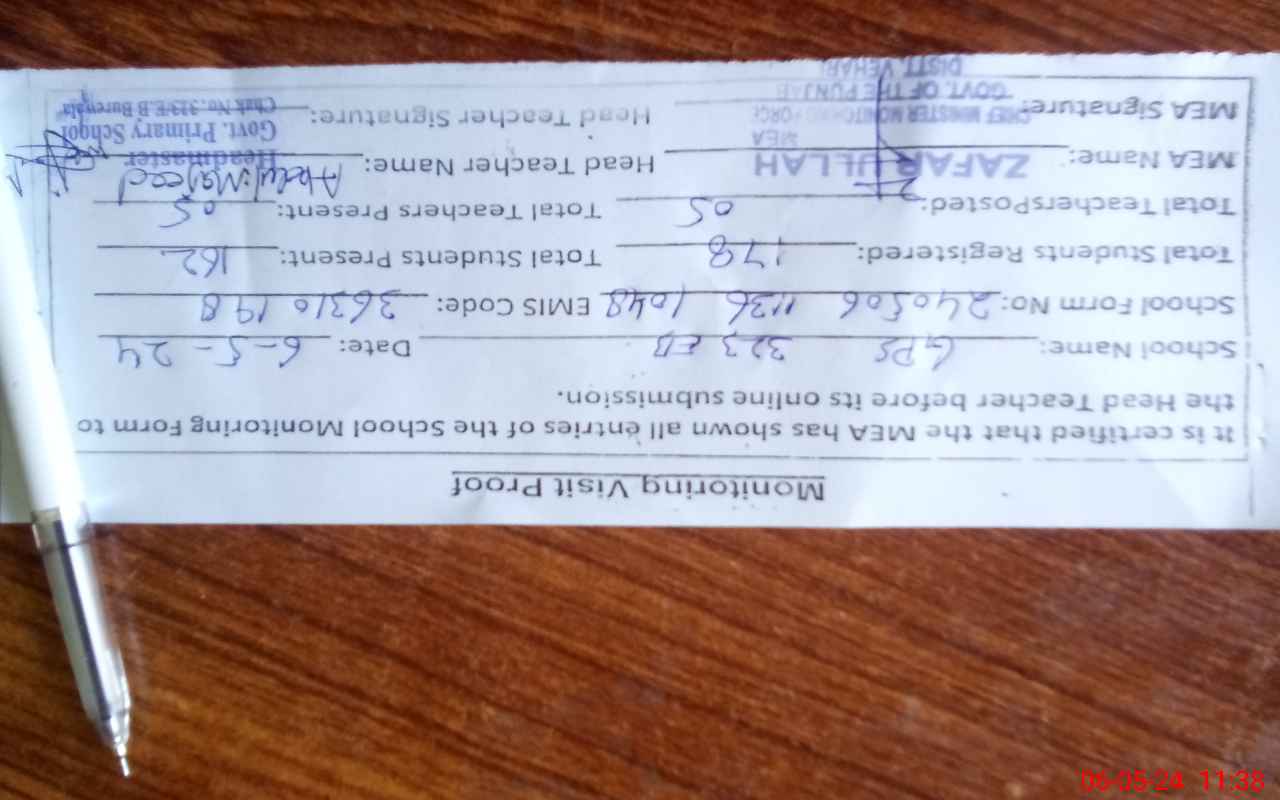 Monitoring Visit Proof
It is certified that the MEA has shown all entries of the School Monitoring Form to
the Head Teacher before its online submission.
School Name: GPS 323 EB Date: 6-5-24
School Form No: 240506 1136 1048 EMIS Code: 36310198
Total Students Registered: 178 Total Students Present: 162
Total TeachersPosted: 05 Total Teachers Present: 05
MEA Name: ZAFAR ULLAH Head Teacher Name: Abdul Majeed
MEA
Headmaster
MEA Signature: CHIEF MINISTER MONITORING FORCE Head Teacher Signature: Govt. Primary School
GOVT. OF THE PUNJAB
Chak No. 323/E.B Burewala
DISTT. VEHARI
06-05-24 11:38